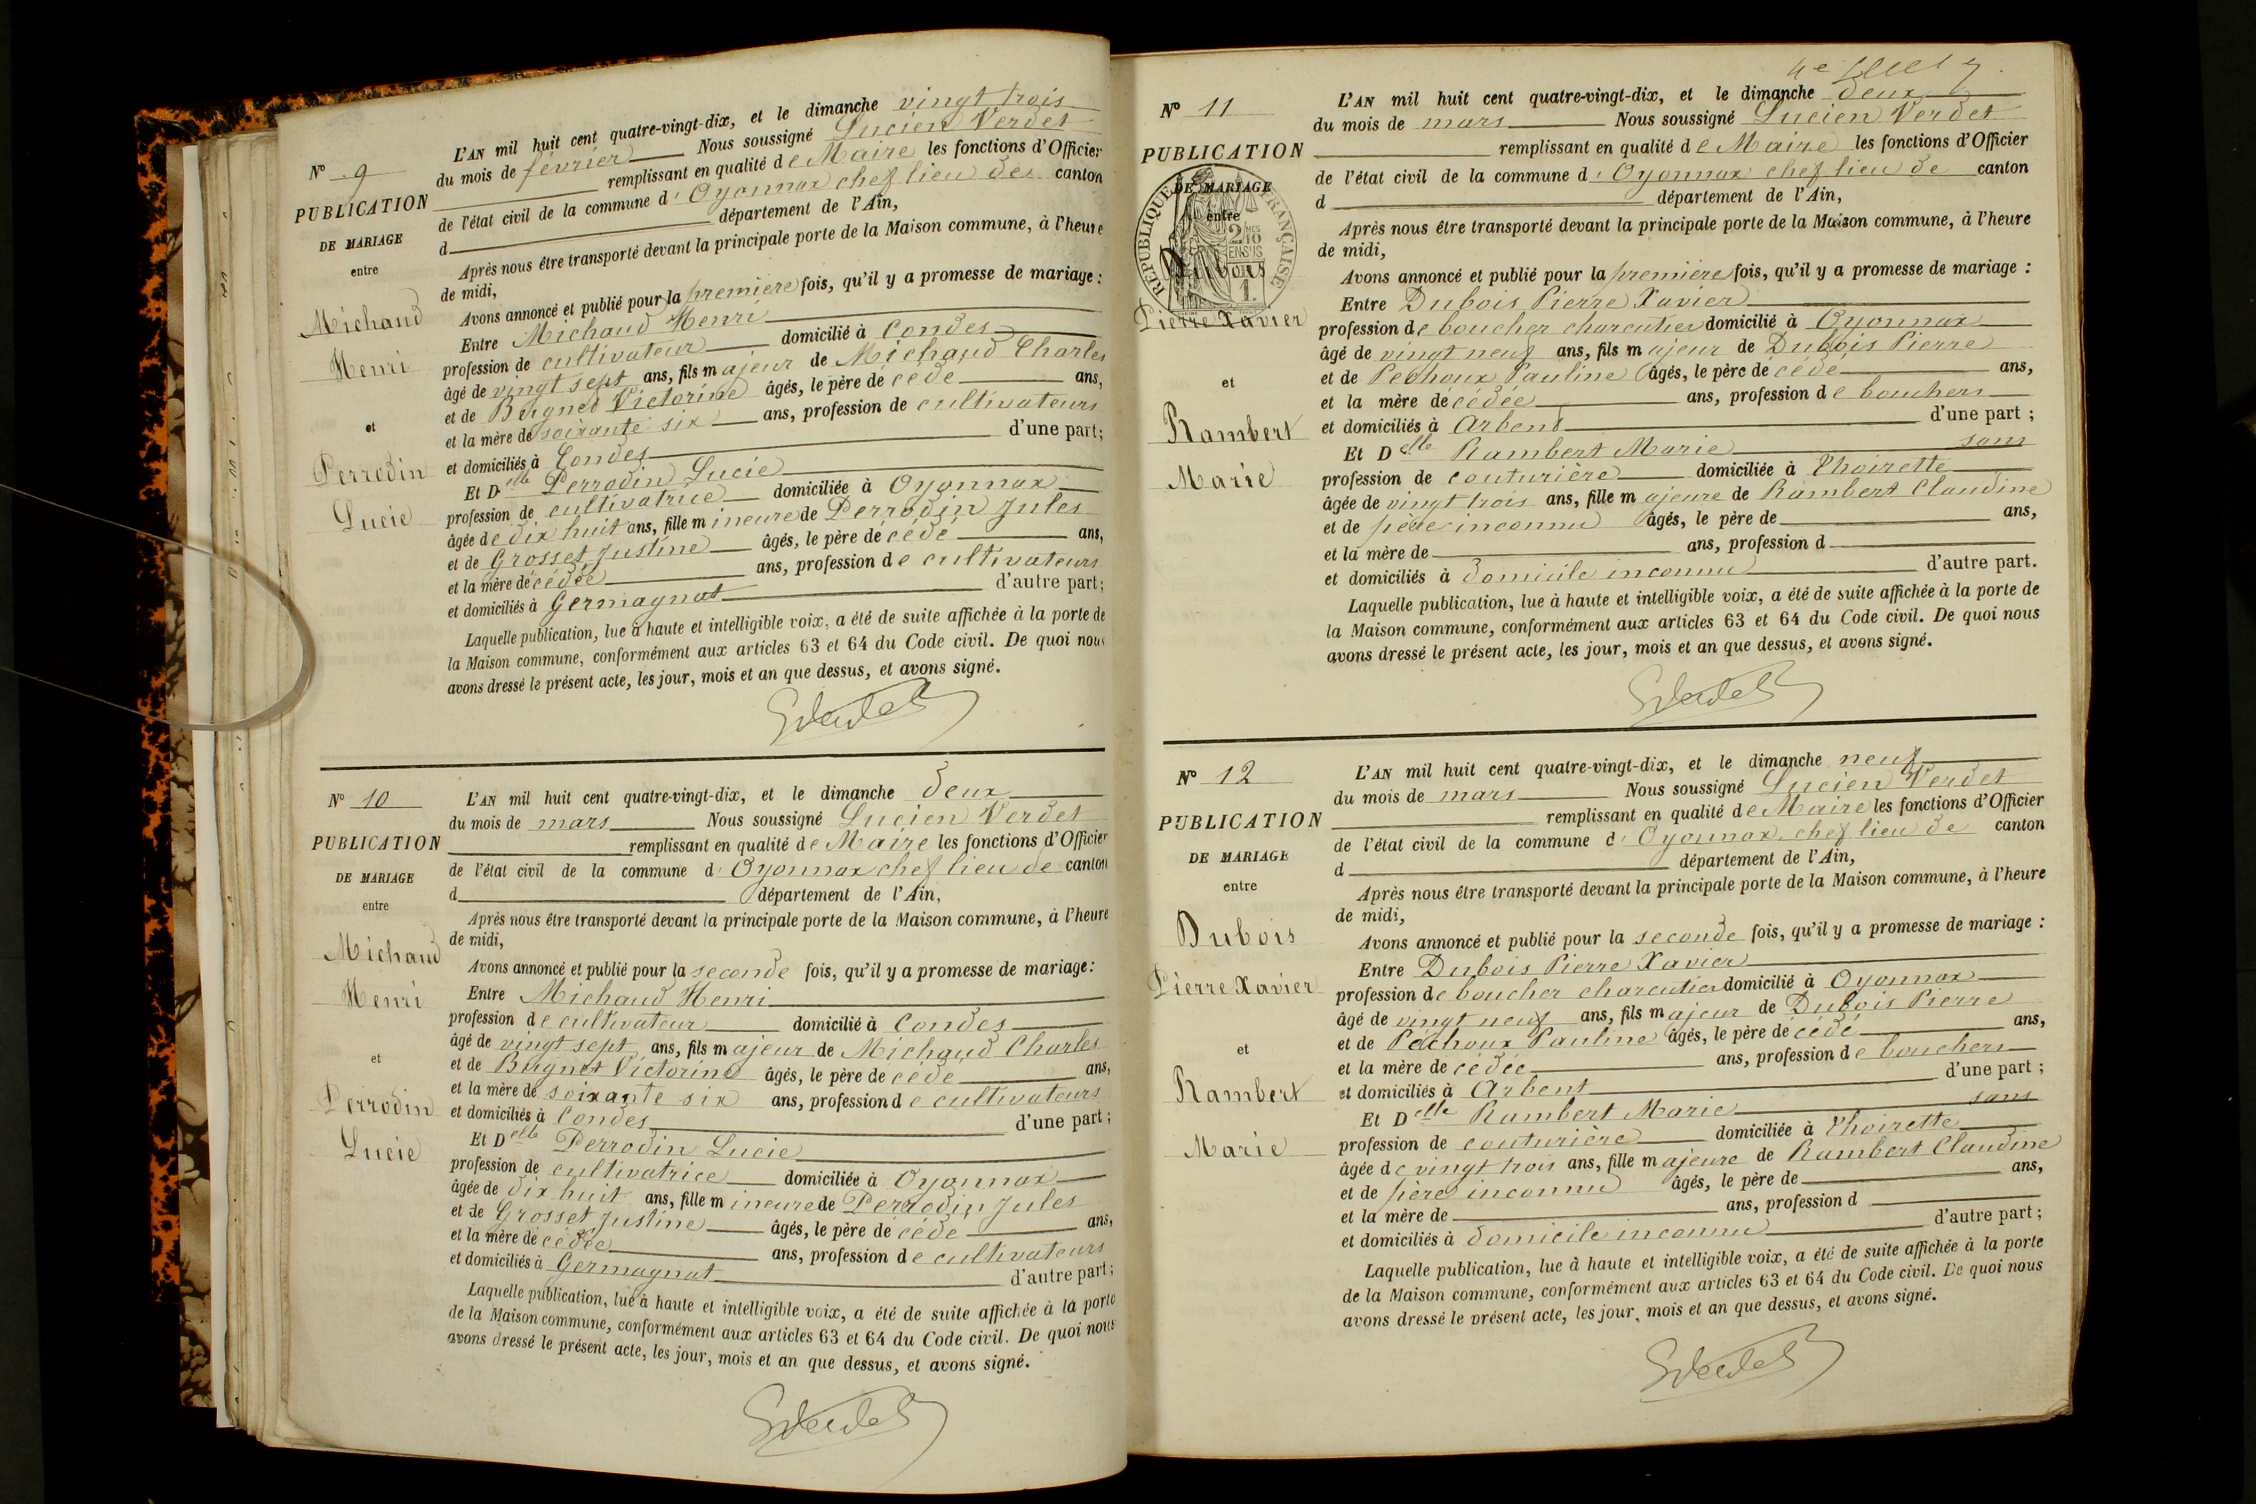 N° 9
PUBLICATION
DE MARIAGE
entre
Michaud
Henri
et
Perrodin
Lucie
L'AN mil huit cent quatre-vingt-dix, et le dimanche vingt trois
du mois de février Nous soussigné Lucien Verdet
remplissant en qualité de Maire les fonctions d'Officier
de l'état civil de la commune d'Oyonnax chef lieu de canton
d département de l'Ain,
Après nous être transporté devant la principale porte de la Maison commune, à l'heure
de midi,
Avons annoncé et publié pour la première fois, qu'il y a promesse de mariage :
Entre Michaud Henri
profession de cultivateur domicilié à Condes
âgé de vingt sept ans, fils majeur de Michaud Charles
et de Bugnet Victorine âgés, le père décédé ans,
et la mère de soixante six ans, profession de cultivateurs
et domiciliés à Condes d'une part;
Et Delle Perrodin Lucie
profession de cultivatrice domiciliée à Oyonnax
âgée de dix huit ans, fille mineure de Perrodin Jules
et de Grosset Justine âgés, le père décédé ans,
et la mère décédée ans, profession de cultivateurs
et domiciliés à Germagnat d'autre part;
Laquelle publication, lue à haute et intelligible voix, a été de suite affichée à la porte de
la Maison commune, conformément aux articles 63 et 64 du Code civil. De quoi nous
avons dressé le présent acte, les jour, mois et an que dessus, et avons signé.
N° 10
PUBLICATION
DE MARIAGE
entre
Michaud
Henri
et
Perrodin
Lucie
L'AN mil huit cent quatre-vingt-dix, et le dimanche deux
du mois de mars Nous soussigné Lucien Verdet
remplissant en qualité de Maire les fonctions d'Officier
de l'état civil de la commune d'Oyonnax chef lieu de canton
d département de l'Ain,
Après nous être transporté devant la principale porte de la Maison commune, à l'heure
de midi,
Avons annoncé et publié pour la seconde fois, qu'il y a promesse de mariage:
Entre Michaud Henri
profession de cultivateur domicilié à Condes
âgé de vingt sept ans, fils majeur de Michaud Charles
et de Bugnet Victorine âgés, le père de cédé ans,
et la mère de soixante six ans, profession de cultivateurs
et domiciliés à Condes d'une part;
Et Delle Perrodin Lucie
profession de cultivatrice domiciliée à Oyonnax
âgée de dix huit ans, fille mineure de Perrodin Jules
et de Grosset Justine âgés, le père décédé ans,
et la mère décédée ans, profession de cultivateurs
et domiciliés à Germagnat d'autre part;
Laquelle publication, lue à haute et intelligible voix, a été de suite affichée à la porte
de la Maison commune, conformément aux articles 63 et 64 du Code civil. De quoi nous
avons dressé le présent acte, les jour, mois et an que dessus, et avons signé.
N° 11
PUBLICATION
DE MARIAGE
entre
RÉPUBLIQUE FRANÇAISE
Dubois
Pierre Xavier
et
Rambert
Marie
L'AN mil huit cent quatre-vingt-dix, et le dimanche deux
du mois de mars Nous soussigné Lucien Verdet
remplissant en qualité de Maire les fonctions d'Officier
de l'état civil de la commune d'Oyonnax chef lieu de canton
d département de l'Ain,
Après nous être transporté devant la principale porte de la Maison commune, à l'heure
de midi,
Avons annoncé et publié pour la première fois, qu'il y a promesse de mariage :
Entre Dubois Pierre Xavier
profession de boucher charcutier domicilié à Oyonnax
âgé de vingt neuf ans, fils majeur de Dubois Pierre
et de Pechoux Pauline âgés, le père décédé ans,
et la mère décédée ans, profession de bouchers
et domiciliés à Arbent d'une part ;
Et Delle Rambert Marie sans
profession de couturière domiciliée à Thoirette
âgée de vingt trois ans, fille majeure de Rambert Claudine
et de père inconnu âgés, le père de ans,
et la mère de ans, profession d
et domiciliés à domicile inconnu d'autre part.
Laquelle publication, lue à haute et intelligible voix, a été de suite affichée à la porte de
la Maison commune, conformément aux articles 63 et 64 du Code civil. De quoi nous
avons dressé le présent acte, les jour, mois et an que dessus, et avons signé.
N° 12
PUBLICATION
DE MARIAGE
entre
Dubois
Pierre Xavier
et
Rambert
Marie
L'AN mil huit cent quatre-vingt-dix, et le dimanche neuf
du mois de mars Nous soussigné Lucien Verdet
remplissant en qualité de Maire les fonctions d'Officier
de l'état civil de la commune d'Oyonnax chef lieu de canton
d département de l'Ain,
Après nous être transporté devant la principale porte de la Maison commune, à l'heure
de midi,
Avons annoncé et publié pour la seconde fois, qu'il y a promesse de mariage :
Entre Dubois Pierre Xavier
profession de boucher charcutier domicilié à Oyonnax
âgé de vingt neuf ans, fils majeur de Dubois Pierre
et de Péchoux Pauline âgés, le père de cédé ans,
et la mère de cédée ans, profession de bouchers
et domiciliés à Arbent d'une part ;
Et Delle Rambert Marie sans
profession de couturière domiciliée à Thoirette
âgée de vingt trois ans, fille majeure de Rambert Claudine
et de père inconnu âgés, le père de ans,
et la mère de ans, profession d
et domiciliés à domicile inconnu d'autre part ;
Laquelle publication, lue à haute et intelligible voix, a été de suite affichée à la porte
de la Maison commune, conformément aux articles 63 et 64 du Code civil. De quoi nous
avons dressé le présent acte, les jour, mois et an que dessus, et avons signé.